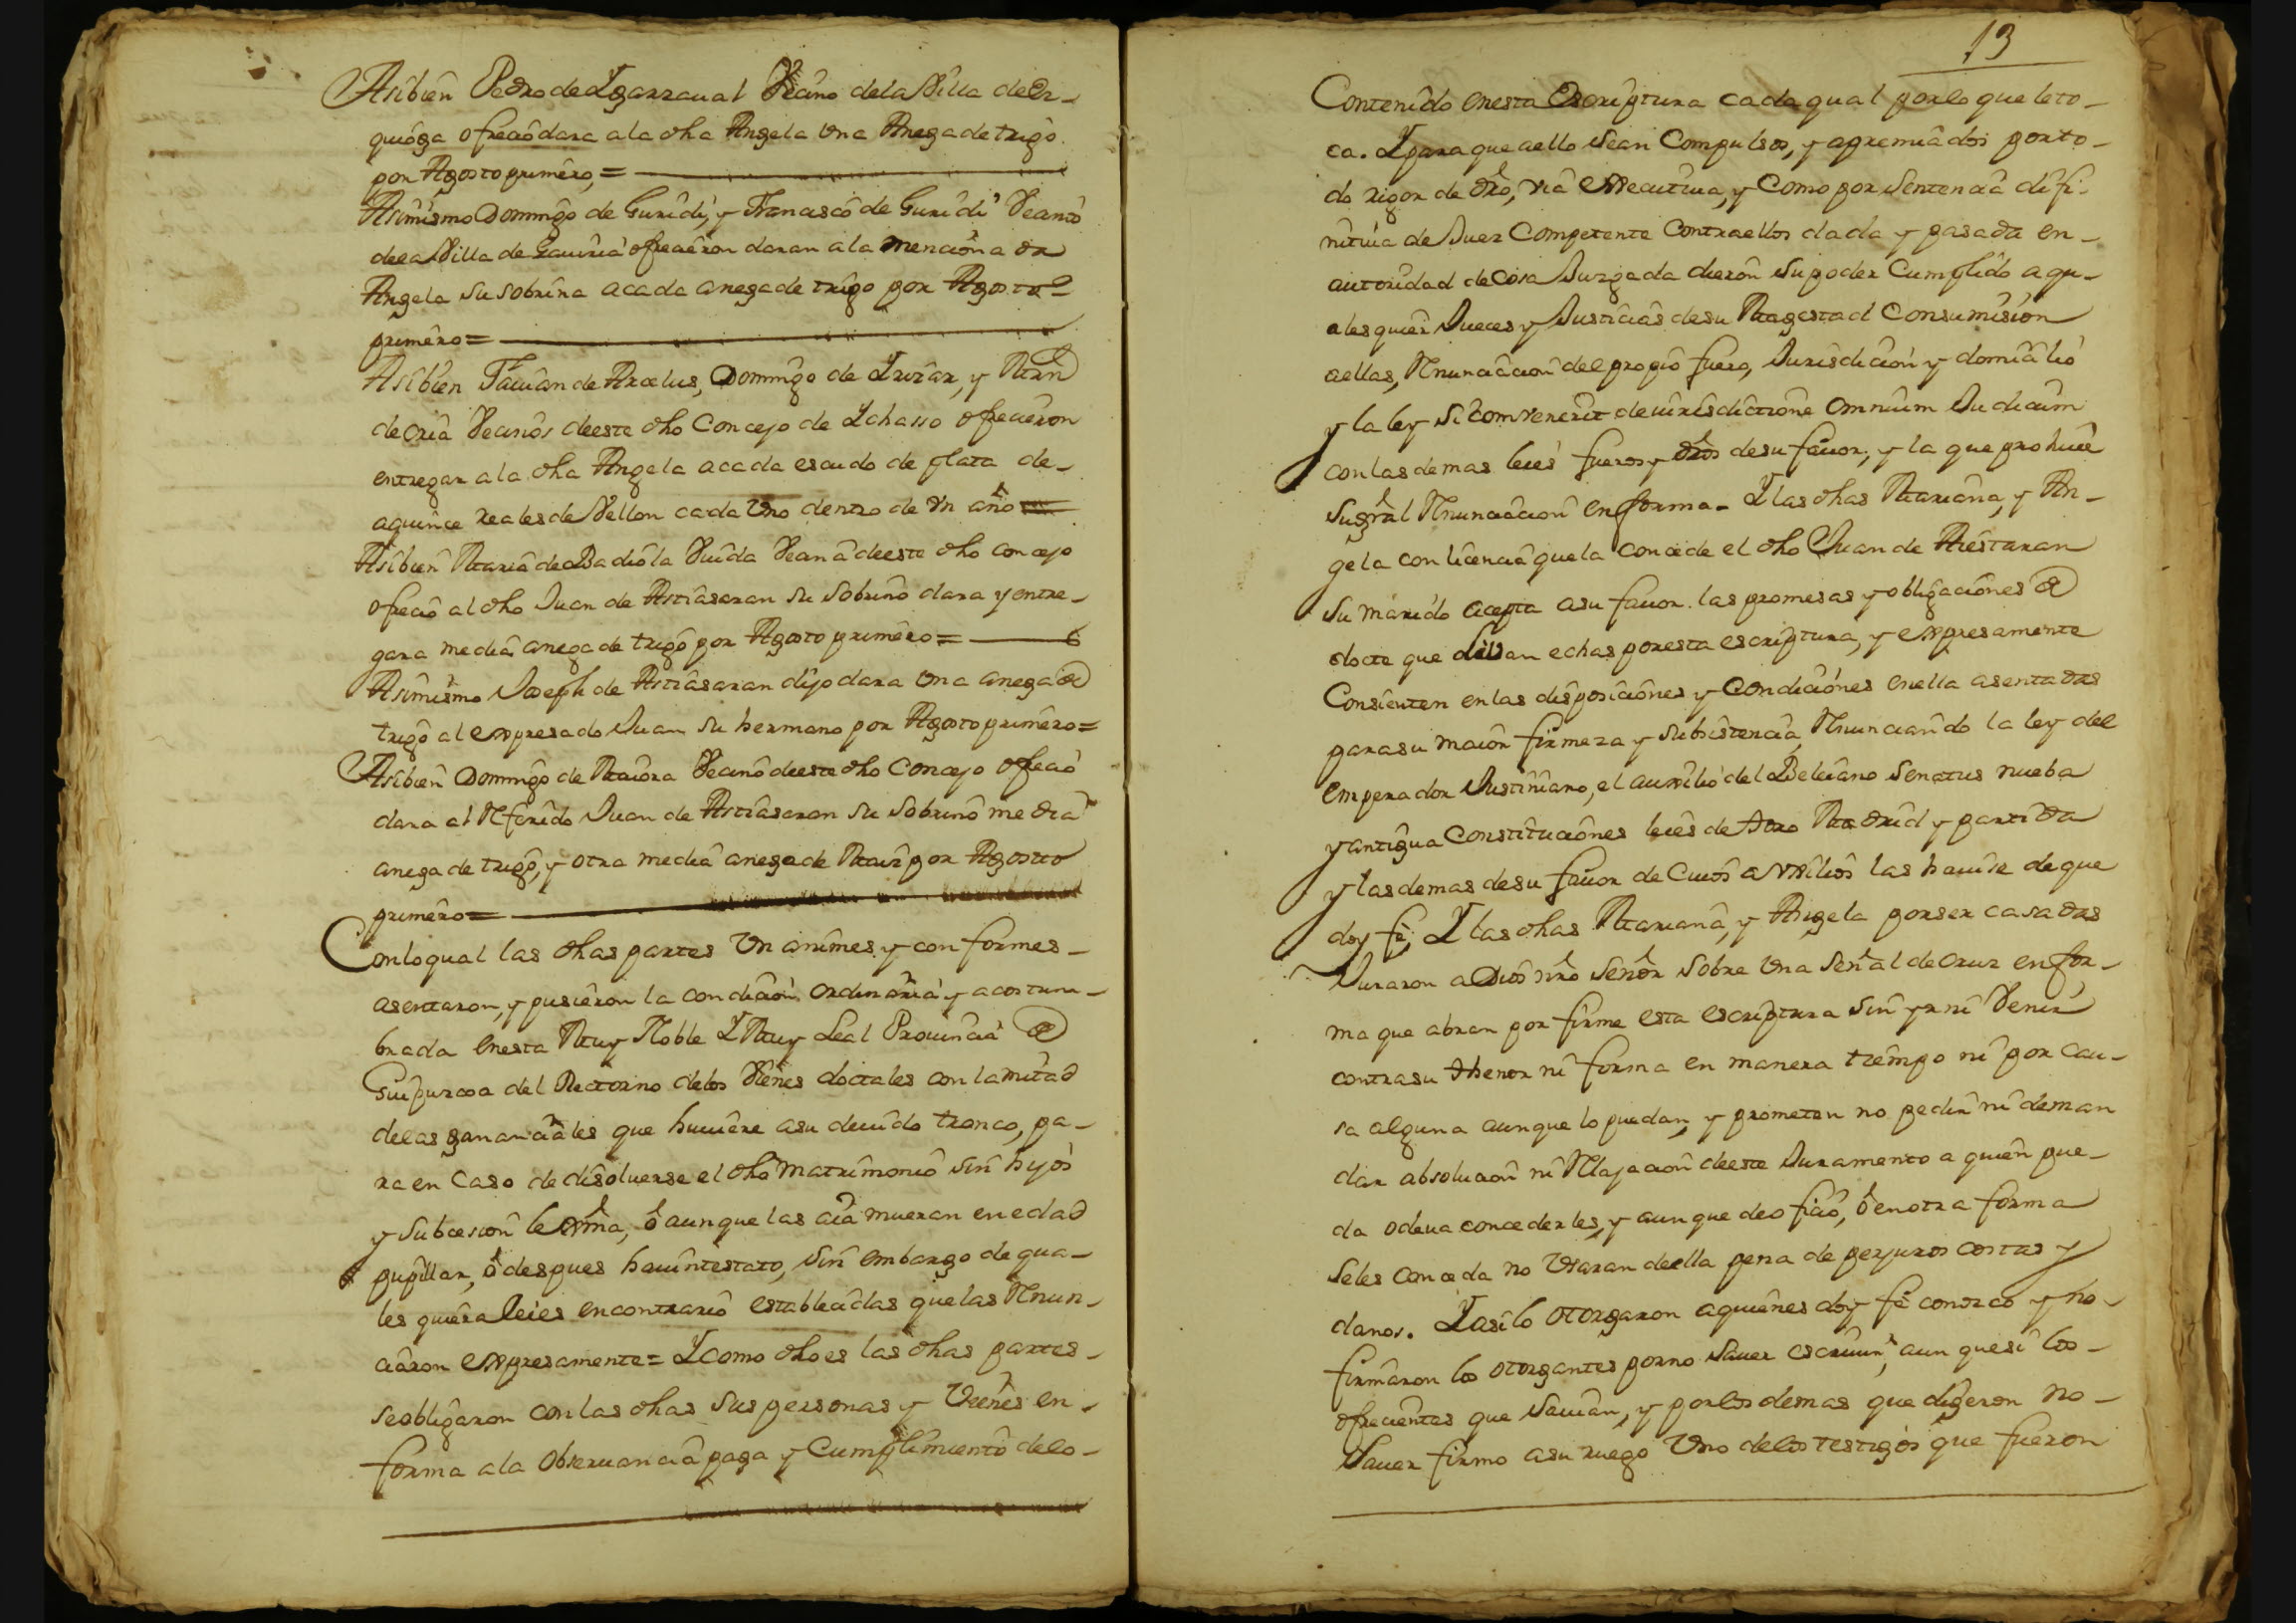 Asibien Pedro de Ygarzaual Vecino dela Villa de Er-
quioga ofrecio dara a la dha Angela Vna Anega de trigo
por Agosto primero, =
Asimismo Domingo de Guridi, y Francisco de Guridi Vecinos
de la Villa de Gauiria ofrecieron daran a la mencionada
Angela su sobrina a cada anega de trigo por Agosto
primero =
Asibien Fauian de Arcelus, Domingo de Yrizar, y Mrn
de oria Vecinos de este dho Concejo de Ychasso ofrecieron
entregar a la dha Angela a cada escudo de plata de
a quince reales de Vellon cada Vno dentro de Vn año =
Asibien Maria de Badiola Viuda Vecina de este dho concejo
ofrecio al dho Juan de Astiasaran su sobrino dara y entre-
gara media anega de trigo por Agosto primero =
Asimismo Joseph de Astiasaran dijo dara Vna anega de
trigo al expresado Juan su hermano por Agosto primero =
Asibien Domingo de Maiora Vecino de este dho Concejo ofrecio
dara al Referido Juan de Astiasaran su sobrino media
anega de trigo, y otra media anega de Maiz por Agosto
primero =
Con lo qual las dhas partes Vnanimes y conformes-
asentaron, y pusieron la condicion ordinaria y acostum-
brada en esta Muy Noble Y Muy Leal Prouincia de
Guipuzcoa del Rectorno de los Vienes doctales con la mitad
de las gananciales que huuiere a su deuido tronco, pa-
ra en Caso de disoluerse el dho matrimonio sin hijos
y subcesion lexma, o aunque las aia mueran en edad
pupillar, o despues hauintestato, sin embargo de qua-
les quiera leies en contrario establecidas que las Renun-
ciaron expresamente = Y como dho es las dhas partes-
se obligaron con las dhas sus personas y Vienes en-
forma a la obseruancia paga y Cumplimiento de lo-
13
Contenido en esta Escriptura cada qual por lo que le to-
ca. Y para que a ello sean Compulsos, y apremiados por to-
do rigor de dro, via executiua, y Como por sentencia difi-
nitiua de Juez Competente Contra ellos dada y pasada en-
autoridad de Cosa Juzgada dieron su poder Cumplido a qu-
ales quier Jueces y Justicias de su Magestad Con sumision
a ellas, Renunciacion del propio fuero, Jurisdicion y domicilio
y la ley si comvenerit de iurisdictione omnium Judicum
con las demas leies fueros y dros de su fauor, y la que prohiue
su gral Renunciacion en forma- Y las dhas Mariana, y An-
gela con licencia que la concede el dho Juan de Aiestaran
su marido acepta a su fauor las promesas y obligaciones de
docte que lleban echas por esta escriptura, y expresamente
Consienten en las disposiciones y Condiciones en ella asentadas
para su maior firmeza y subsistencia, Renunciando la ley del
emperador Justiniano, el auxilio del Beleiano senatus nueba
y antigua Constituciones leies de toro Madrid y partida
y las demas de su fauor de Cuios auxilios las hauise de que
doy fe, Y las dhas Mariana, y Angela por ser casadas
Juraron a Dios nro señor sobre Vna señal de Cruz en for-
ma que abran por firme esta escriptura sin yr ni Venir
contra su thenor ni forma en manera tiempo ni por cau-
sa alguna aunque lo puedan, y prometen no pedir ni deman
dar absolucion ni Relajacion de este Juramento a quien pue-
da o deua concederles, y aunque de oficio, o en otra forma
se les conceda no Vsaran de ella pena de perjuros costas y
danos. Y asi lo otorgaron a quienes doy fe conozco y no-
firmaron los otorgantes por no sauer escriuir, aunque si los-
ofrecientes que sauian, y por los demas que dijeron no-
sauer firmo a su ruego Vno de los testigos que fueron